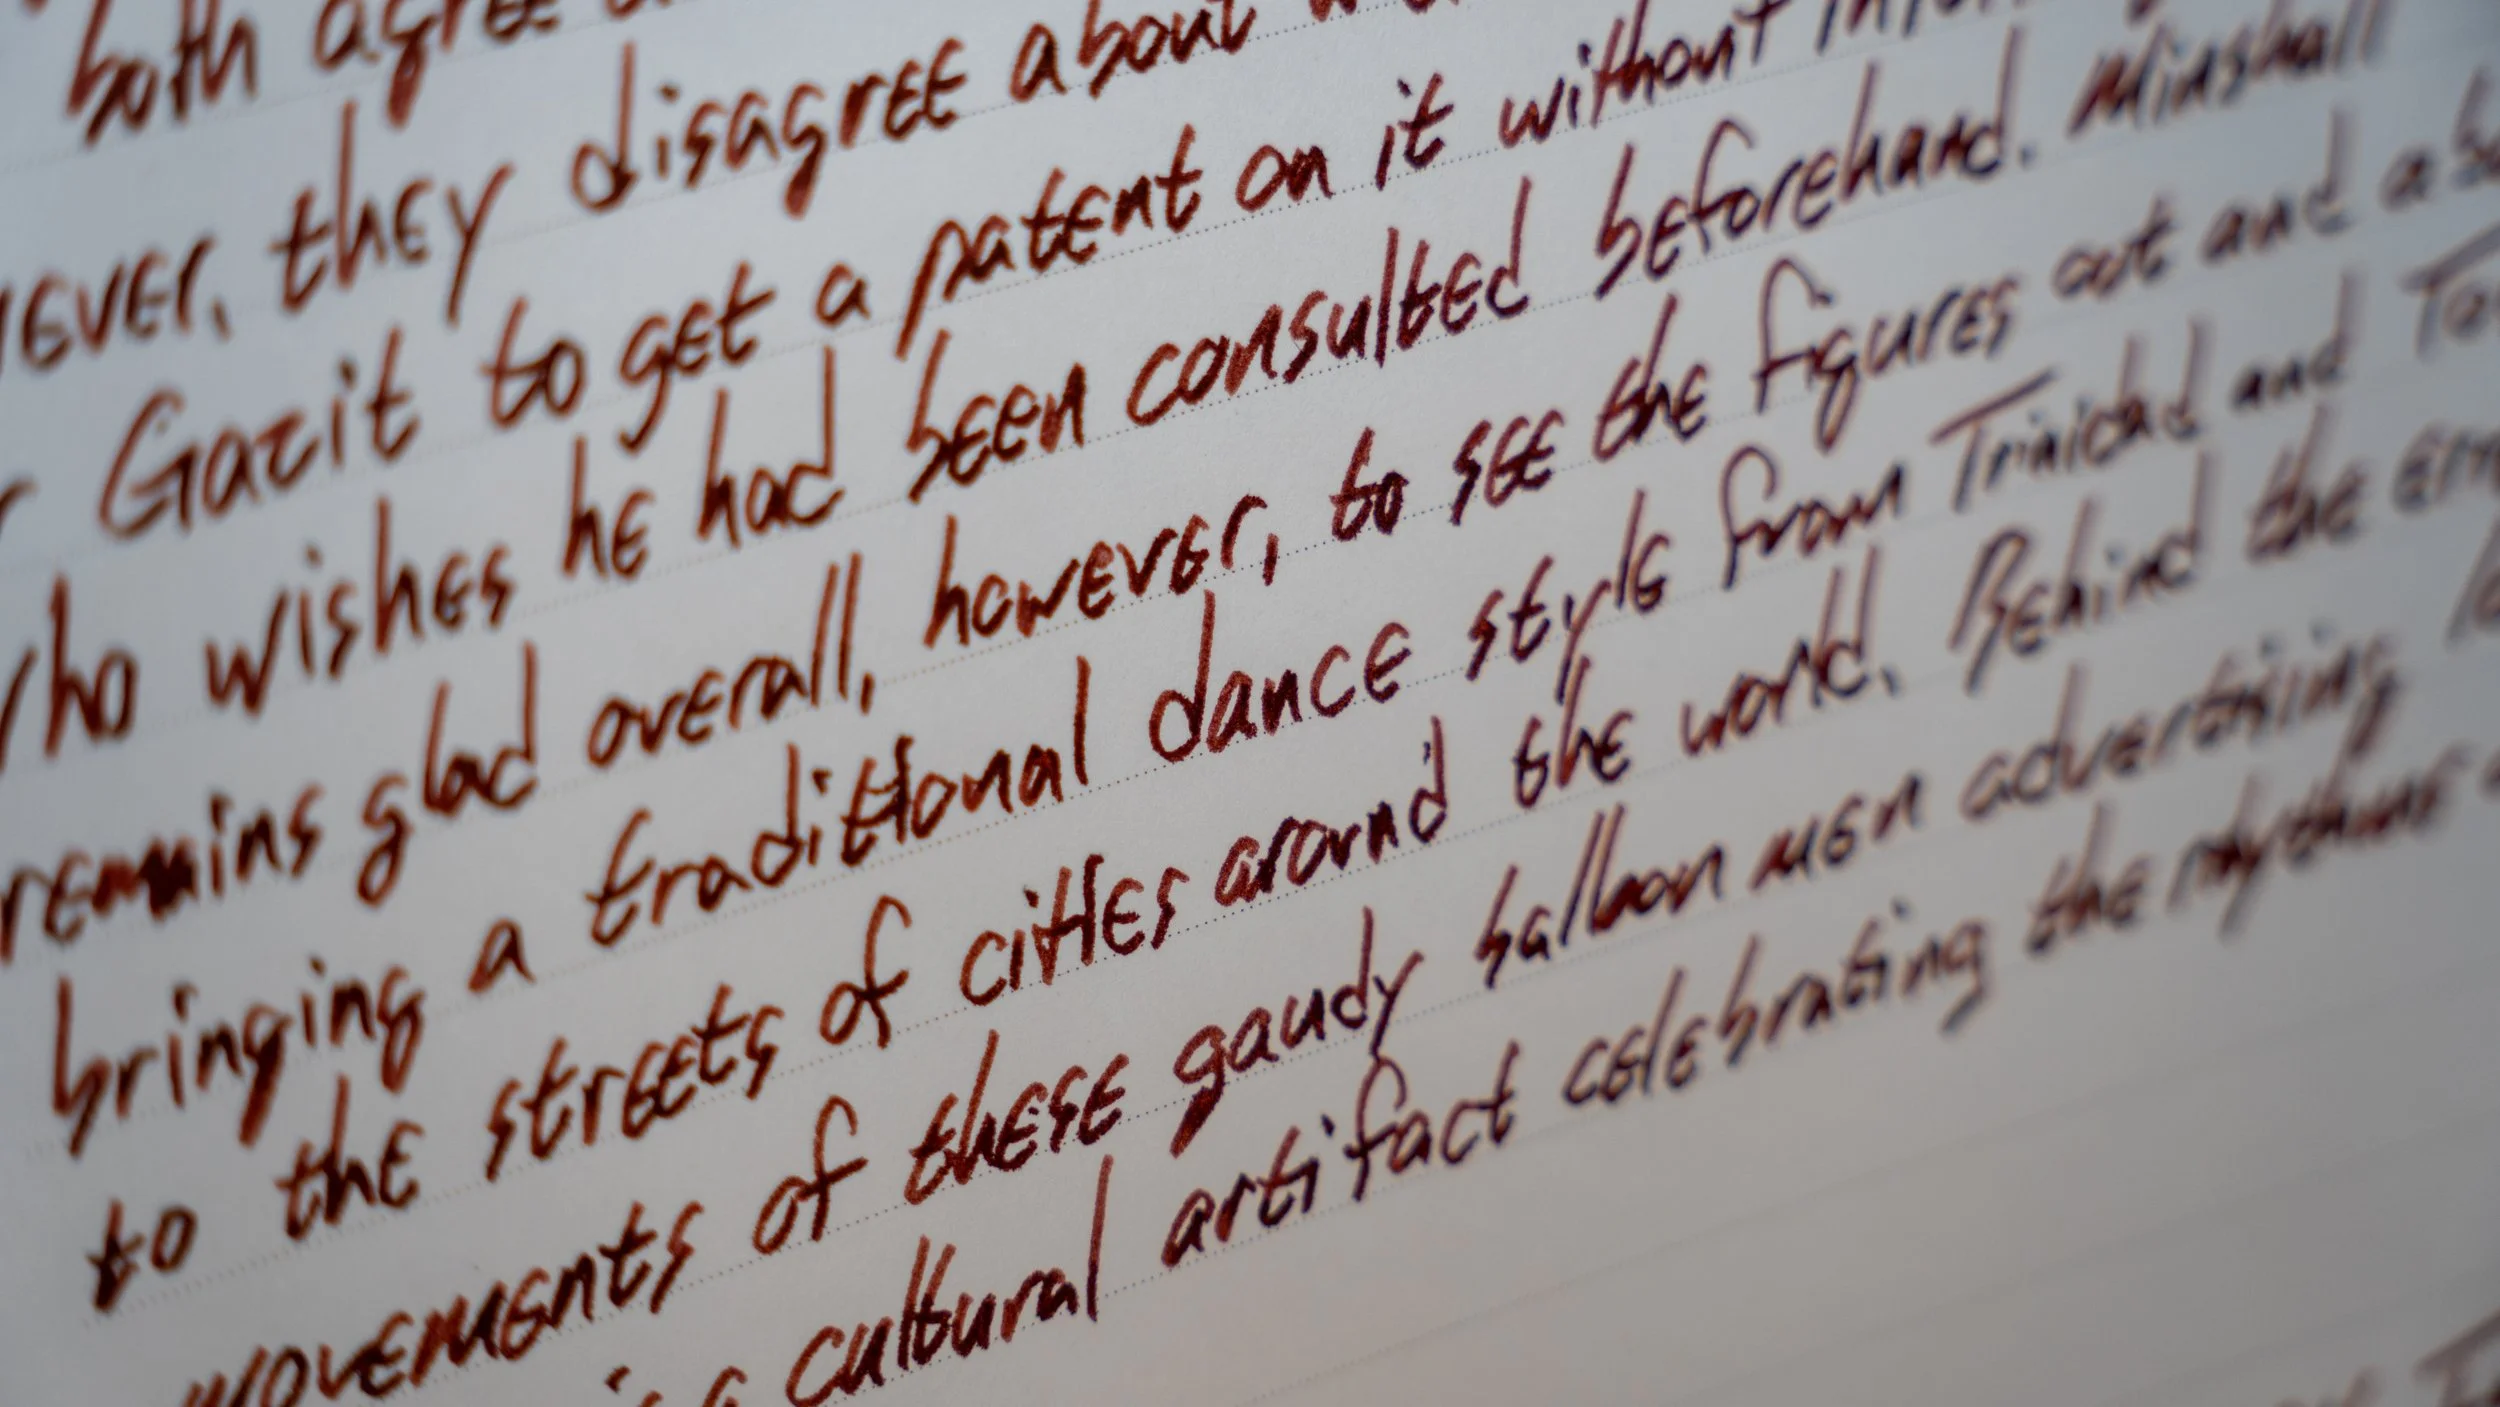 both agree
they disagree about
Gazit to get a patent on it without
wishes he had been consulted beforehand. Minshall
remains glad overall, however, to see the figures out and
bringing a traditional dance style from Trinidad and
to the streets of cities around the world. Behind the
movements of these gaudy balloon men advertising
cultural artifact celebrating the rhythms